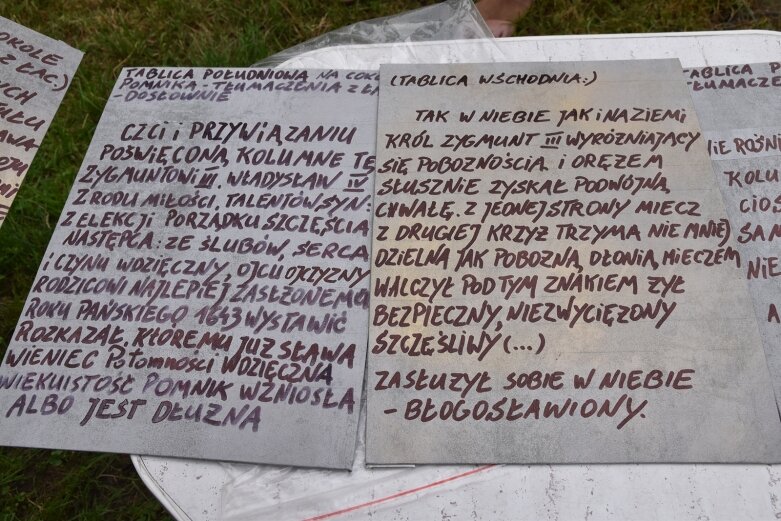 OKOLE
Z ŁAC.)
TABLICA POŁUDNIOWA NA COK
POMNIKA - TŁUMACZENIA Z ŁA
- DOSŁOWNIE
CZCI i PRZYWIĄZANIU
POŚWIĘCONĄ KOLUMNE TĘ
ZYGMUNTOWI III. WŁADYSŁAW IV
Z RODU MIŁOŚCI, TALENTÓW SYN:
Z ELEKCJI PORZĄDKU SZCZĘŚCIA
NASTĘPCA: ZE ŚLUBÓW, SERCA
i CZYNU WDZIĘCZNY, OJCU OJCZYZNY
RODZICOWI NAJLEPIEJ ZASŁŻONEMU
ROKU PAŃSKIEGO 1643 WYSTAWIĆ
ROZKAZAŁ, KTÓREMU JUŻ SŁAWA
WIENIEC POTOMNOŚCI WDZIĘCZNĄ
WIEKUISTOŚĆ POMNIK WZNIOSŁA
ALBO JEST DŁUŻNA
(TABLICA WSCHODNIA:)
TAK W NIEBIE JAK i NA ZIEMI
KRÓL ZYGMUNT III WYRÓŻNIAJĄCY
SIĘ POBOŻNOŚCIĄ i ORĘŻEM
SŁUSZNIE ZYSKAŁ PODWÓJNĄ
CHWAŁĘ. Z JEDNEJ STRONY MIECZ
Z DRUGIEJ KRZYŻ TRZYMA NIE MNIEJ
DZIELNĄ JAK POBOŻNĄ DŁONIĄ, MIECZEM
WALCZYŁ POD TYM ZNAKIEM ŻYŁ
BEZPIECZNY, NIEZWYCIĘŻONY
SZCZĘŚLIWY (...)
ZASŁUŻYŁ SOBIE W NIEBIE
- BŁOGOSŁAWIONY.
TABLICA P
TŁUMACZE
NIE RÓŻNI
KOLU
CIOS
SAM
NIE
A